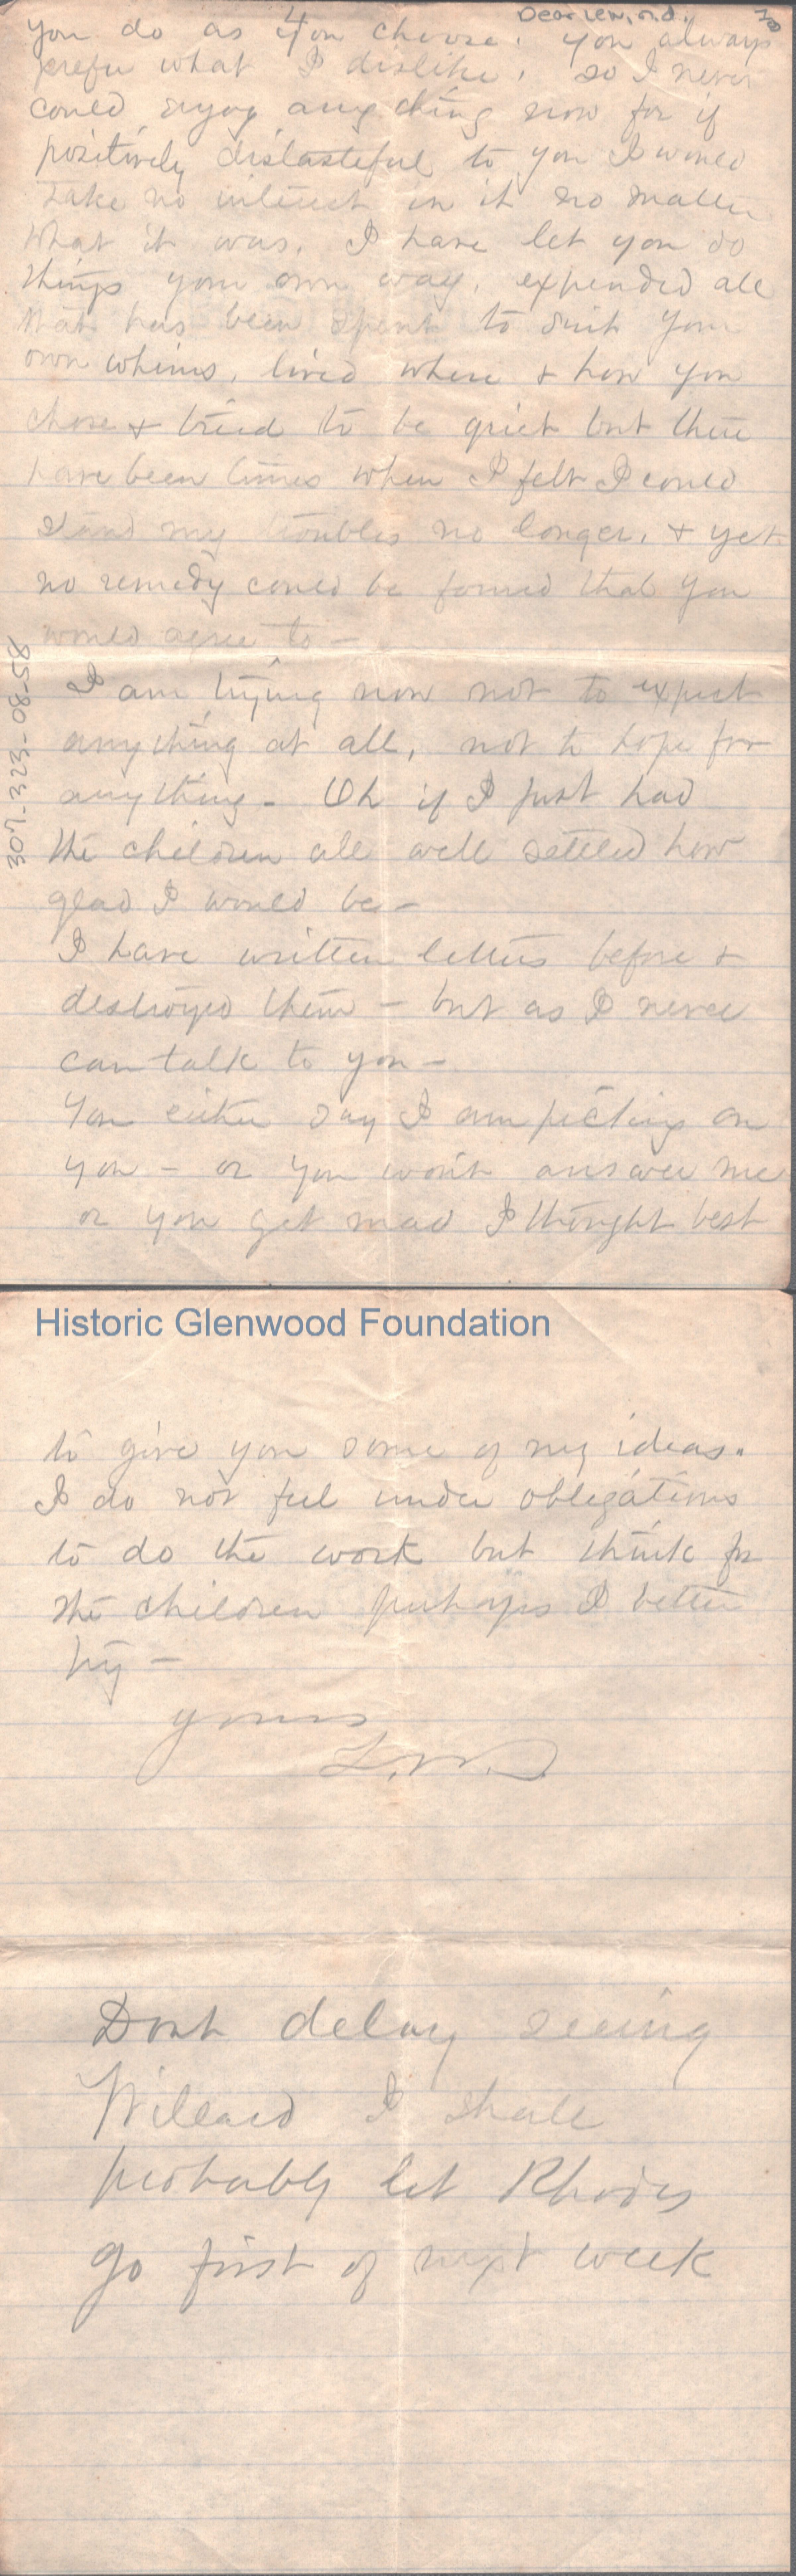 4
Dear Lew, n.d.
you do as you choose. you always
prefer what I dislike. so I never
could enjoy any thing now for if
positively distasteful to you I would
take no interest in it no matter
what it was. I have let you do
things your own way. expended all
that has been spent to suit your
own whims, lived where & how you
chose & tried to be quiet but there
have been times when I felt I could
stand my troubles no longer. & yet
no remedy could be found that you
would agree to —
I am trying now not to expect
anything at all, not to hope for
anything - Oh if I just had
the children all well settled how
glad I would be —
I have written letters before &
destroyed them — but as I never
can talk to you —
You either say I am picking on
you — or you wont answer me
or you get mad I thought best
307-323-08-58
Historic Glenwood Foundation
to give you some of my ideas.
I do not feel under obligations
to do the work but think for
the children perhaps I better
try —
yours
L.W.D.
Dont delay seeing
Willard I shall
probably let Rhodes
go first of next week